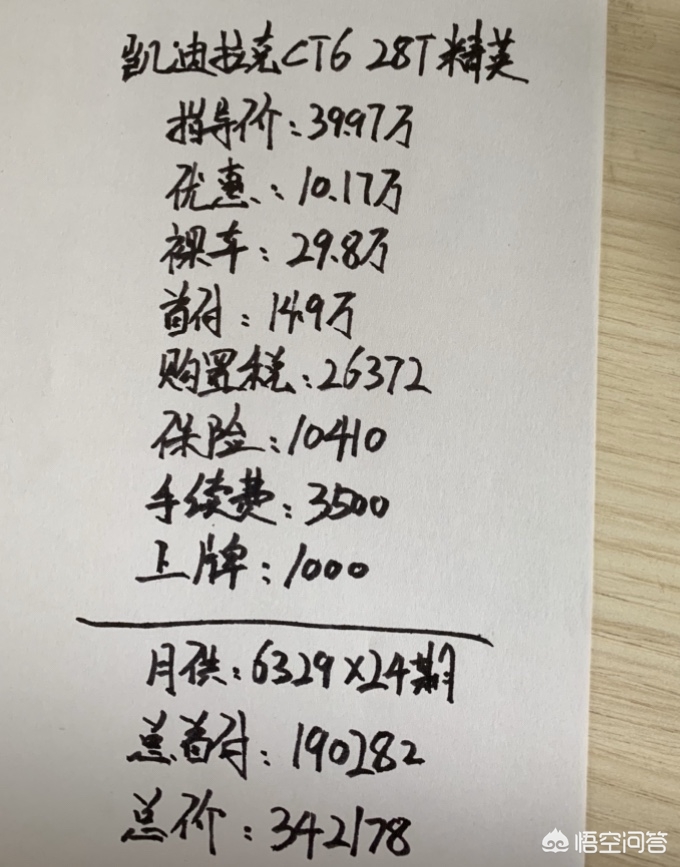 凯迪拉克CT6 28T精英
指导价:39.97万
优惠:10.17万
裸车:29.8万
首付:14.9万
购置税:26372
保险:10410
手续费:3500
上牌:1000
月供:6329×24期
总首付:190282
总价:342178
悟空问答